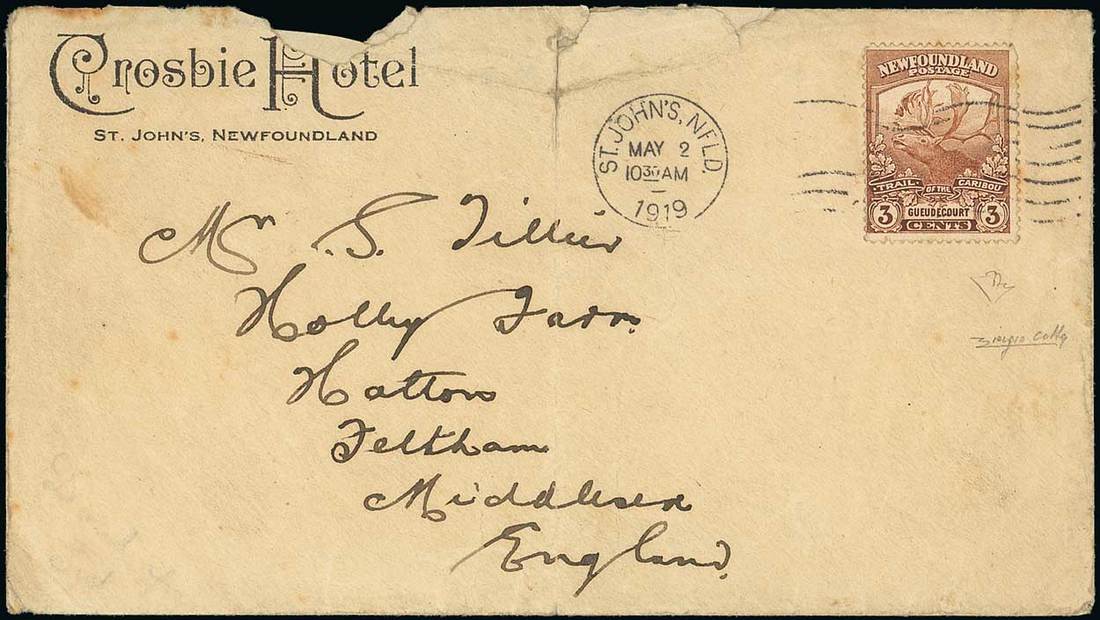 Crosbie Hotel
ST. JOHN'S, NEWFOUNDLAND
ST. JOHN'S, NFLD.
MAY 2
10 30 AM
1919
NEWFOUNDLAND
POSTAGE
TRAIL OF THE CARIBOU
3 GUEUDECOURT 3
CENTS
Mr. S. Tillier
Holly Farm
Hatton
Feltham
Middlesex
England.